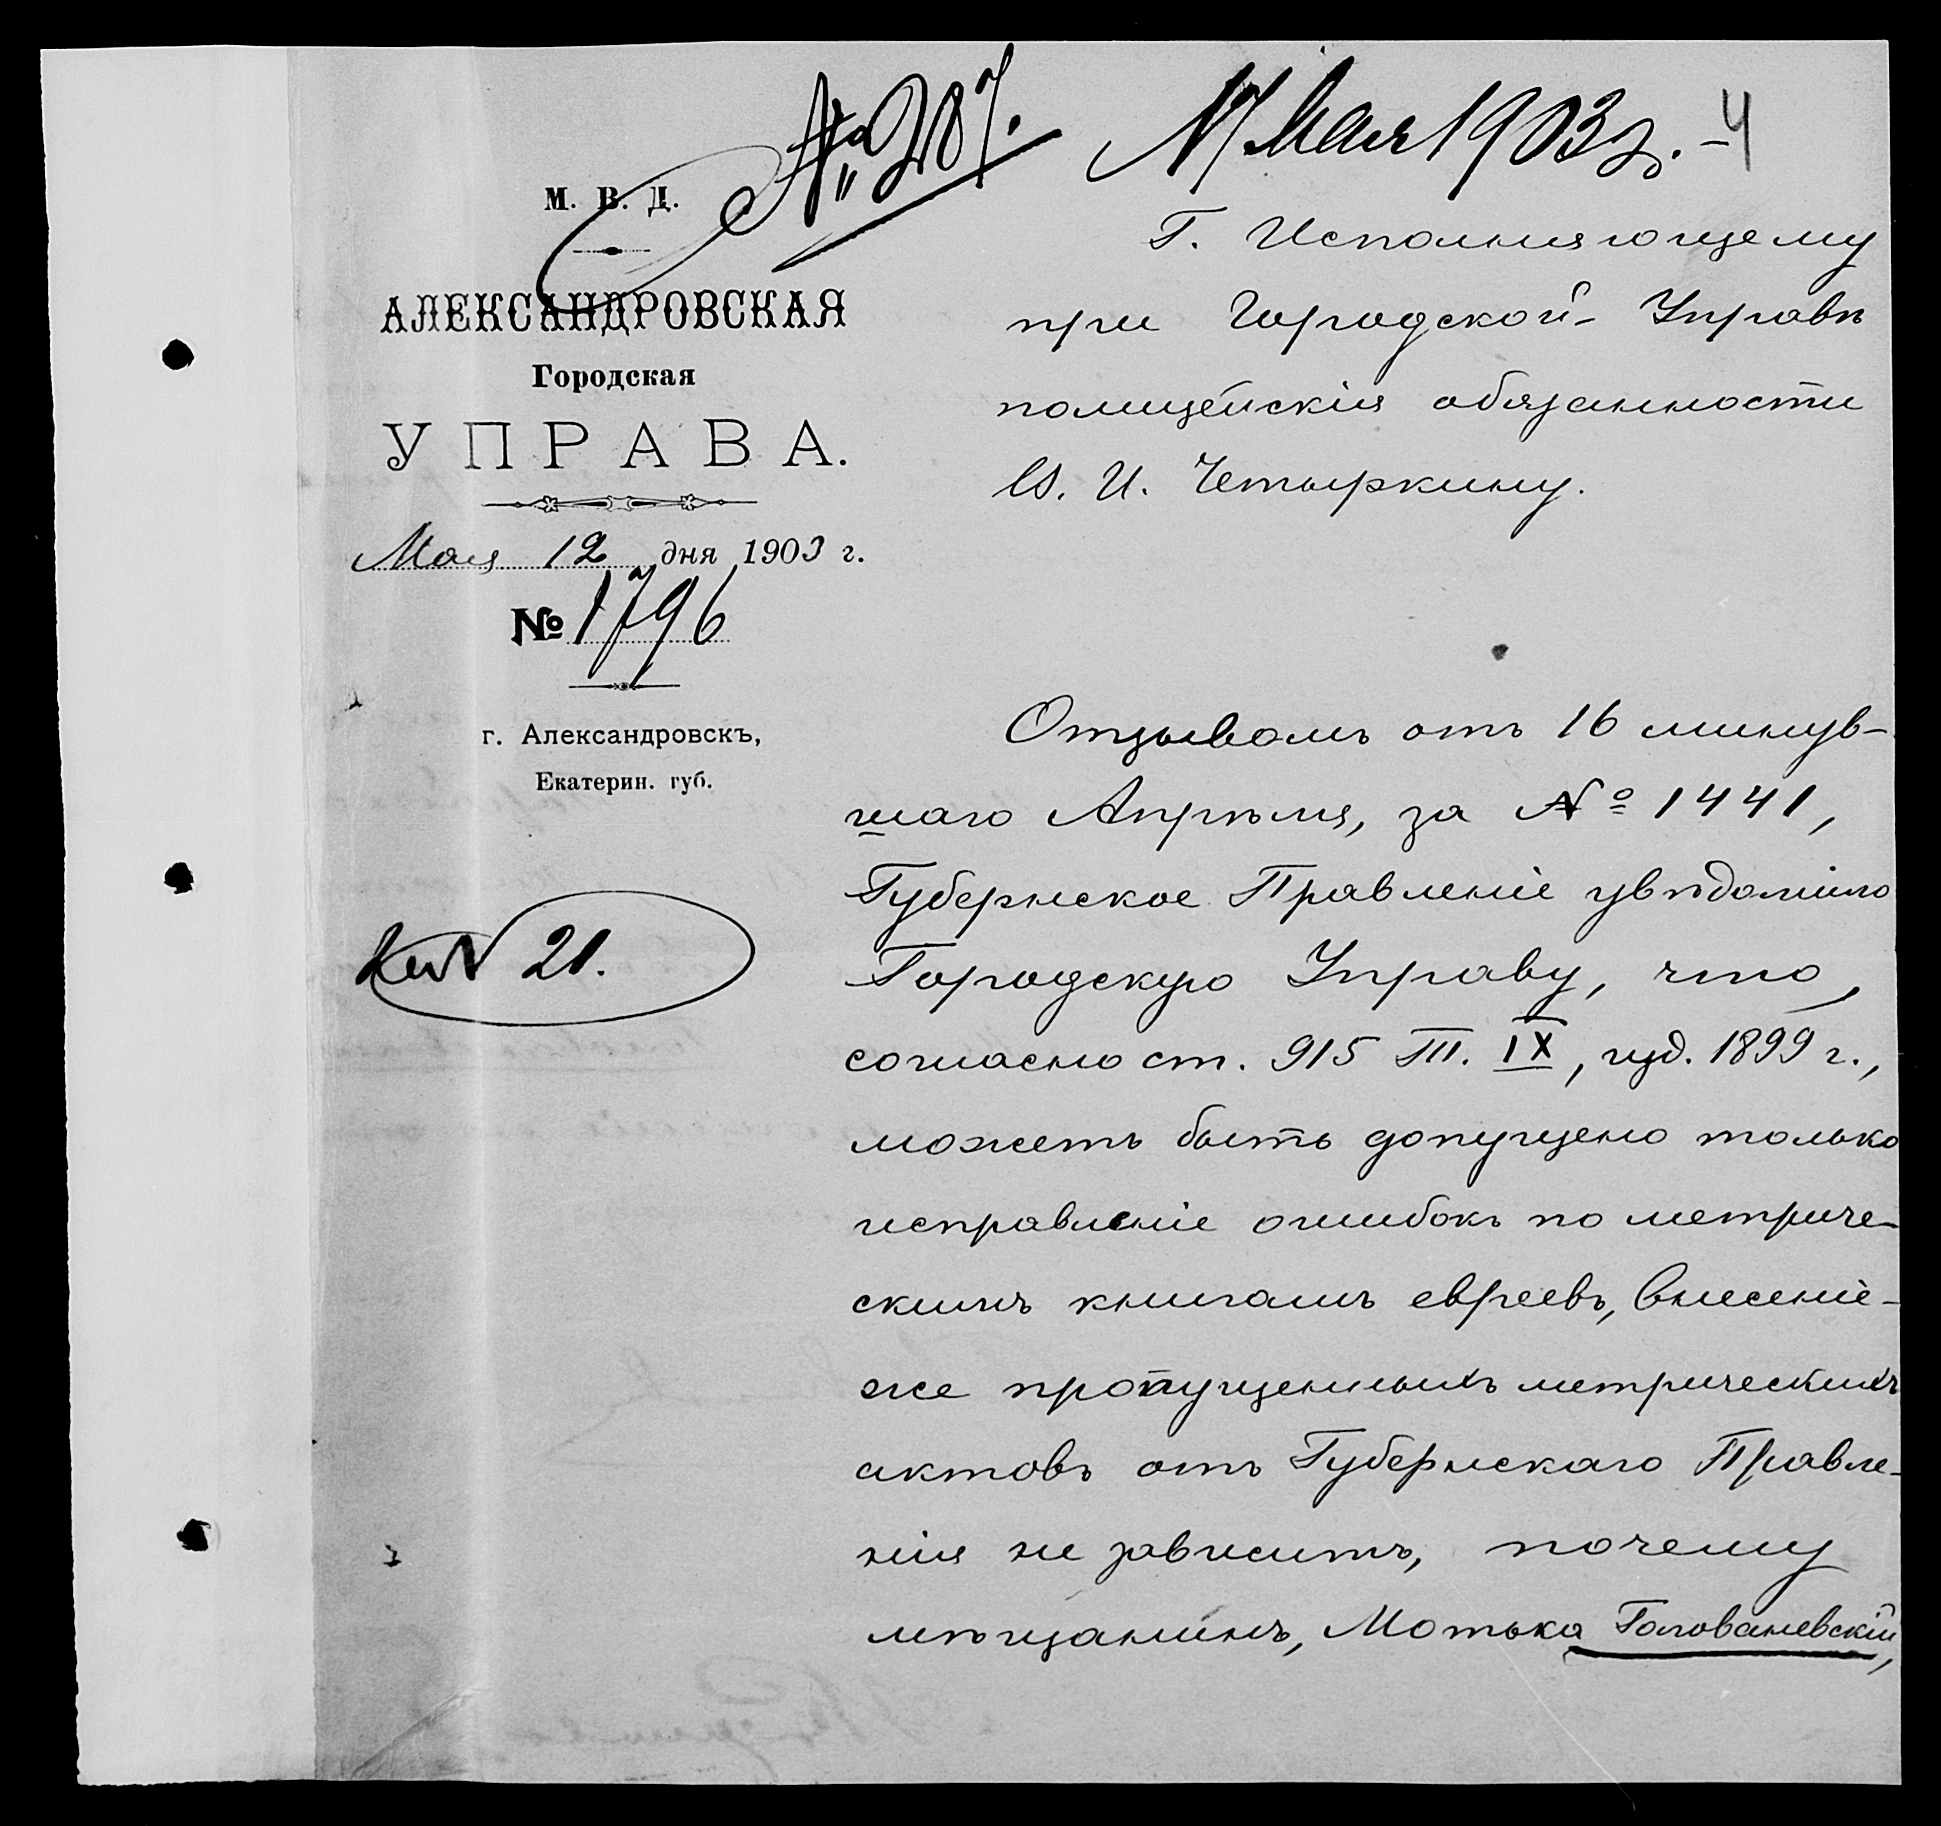 № 287. 17 Мая 1903 г. - 4
М. В. Д.
АЛЕКСАНДРОВСКАЯ
Городская
УПРАВА.
Мая 12 дня 1903 г.
№ 1796
г. Александровскъ,
Екатерин. губ.
21.
Г. Исполняющему
при Городской Управѣ
полицейскія обязанности
И. Четыркину.
Отзывомъ отъ 16 минув-
шаго Апрѣля, за № 1441,
Губернское Правленіе увѣдомило
Городскую Управу, что,
согласно ст. 915 Т. IX, изд. 1899 г.,
можетъ быть допущено только
исправленіе ошибокъ по метриче-
скимъ книгамъ евреевъ, внесеніе-
же пропущенныхъ метрическихъ
актовъ отъ Губернскаго Правле-
нія не зависитъ, почему
мѣщанинъ, Мотька Голованевскій,